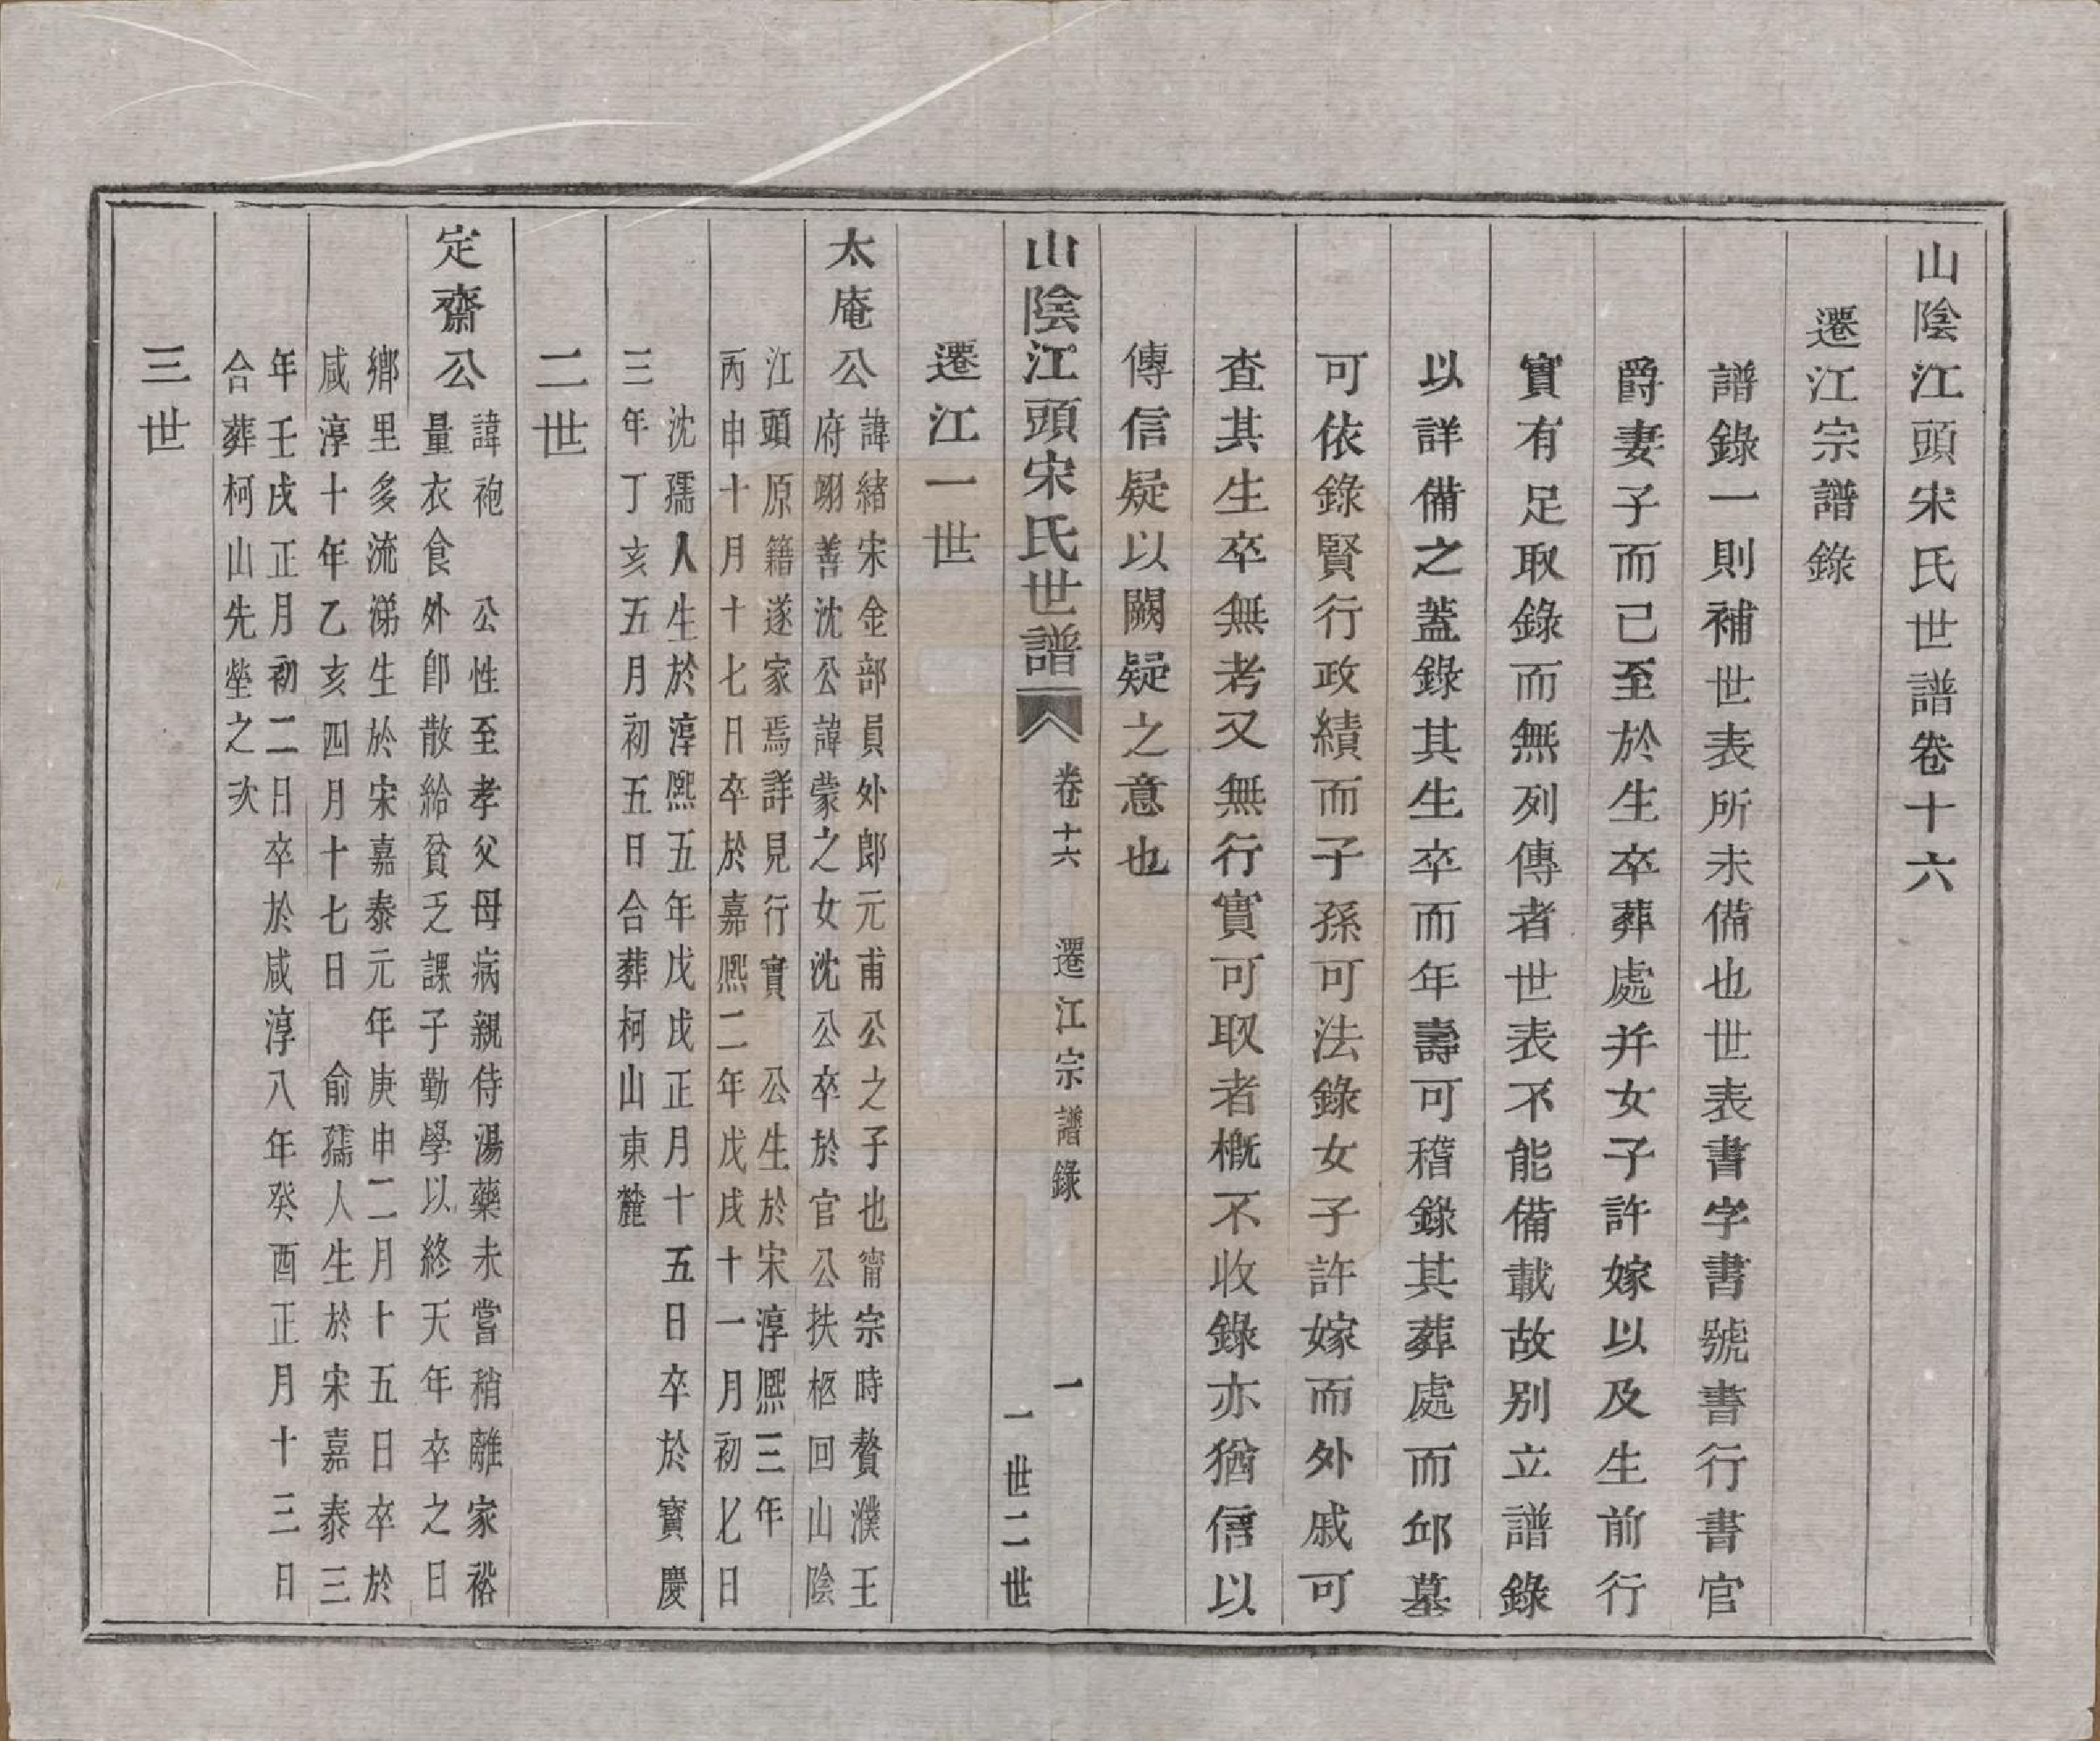 山陰江頭宋氏世譜卷十六
遷江宗譜錄
譜錄一則補世表所未備也世表書字書號書行書官
爵妻子而已至於生卒葬處并女子許嫁以及生前行
實有足取錄而無列傳者世表不能備載故別立譜錄
以詳備之蓋錄其生卒而年壽可稽錄其葬處而邱墓
可依錄賢行政績而子孫可法錄女子許嫁而外戚可
查其生卒無考又無行實可取者槪不收錄亦猶信以
傳信疑以闕疑之意也
山陰江頭宋氏世譜
卷十六
遷江宗譜錄
一
一世二世
遷江一世
太庵公
諱緒宋金部員外郎元甫公之子也甯宗時贅濮王
府翊善沈公諱蒙之女沈公卒於官公扶柩回山陰
江頭原籍遂家焉詳見行實 公生於宋淳熙三年
丙申十月十七日卒於嘉熙二年戊戌十一月初七日
沈孺人生於淳熙五年戊戌正月十五日卒於寶慶
三年丁亥五月初五日合葬柯山東麓
二世
定齋公
諱袍 公性至孝父母病親侍湯藥未嘗稍離家裕
量衣食外卽散給貧乏課子勤學以終天年卒之日
鄉里多流涕生於宋嘉泰元年庚申二月十五日卒於
咸淳十年乙亥四月十七日 俞孺人生於宋嘉泰三
年壬戌正月初二日卒於咸淳八年癸酉正月十三日
合葬柯山先塋之次
三世